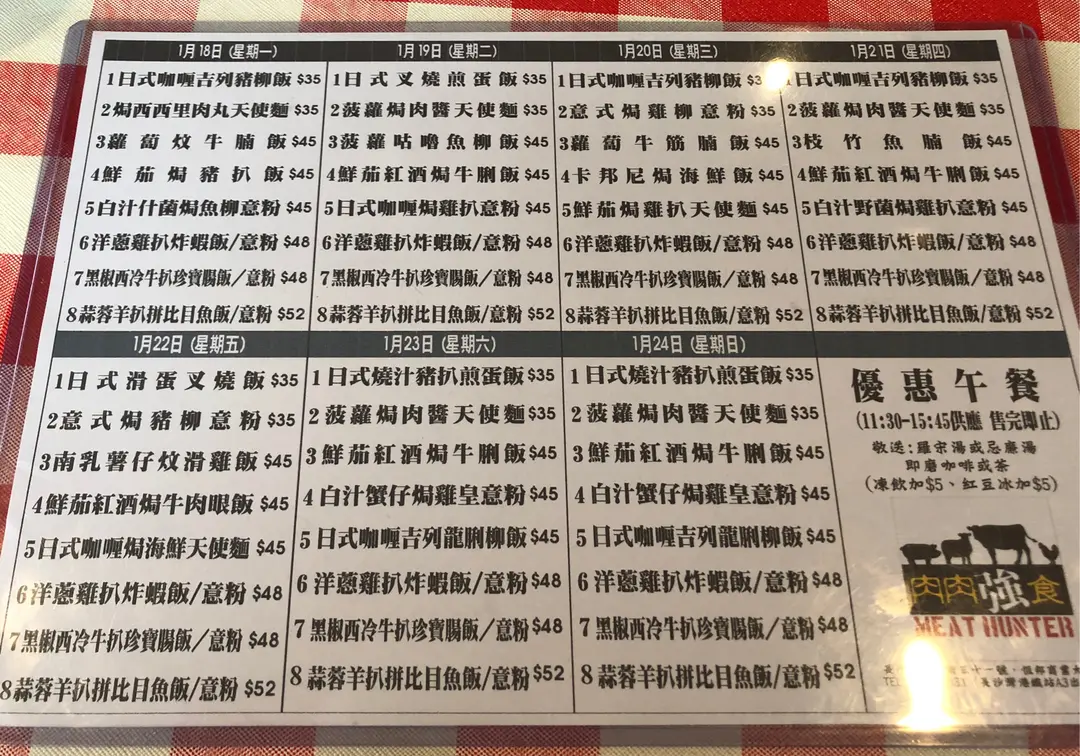 1月18日 (星期一)
1日式咖喱吉列豬柳飯 $35
2焗西西里肉丸天使麵 $35
3蘿蔔炆牛腩飯 $45
4鮮茄焗豬扒飯 $45
5白汁什菌焗魚柳意粉 $45
6洋蔥雞扒炸蝦飯/意粉 $48
7黑椒西冷牛扒珍寶腸飯/意粉 $48
8蒜蓉羊扒拼比目魚飯/意粉 $52
1月19日 (星期二)
1日式叉燒煎蛋飯 $35
2菠蘿焗肉醬天使麵 $35
3菠蘿咕嚕魚柳飯 $45
4鮮茄紅酒焗牛脷飯 $45
5日式咖喱焗雞扒意粉 $45
6洋蔥雞扒炸蝦飯/意粉 $48
7黑椒西冷牛扒珍寶腸飯/意粉 $48
8蒜蓉羊扒拼比目魚飯/意粉 $52
1月20日 (星期三)
1日式咖喱吉列豬柳飯
2意式焗雞柳意粉 $35
3蘿蔔牛筋腩飯 $45
4卡邦尼焗海鮮飯 $45
5鮮茄焗雞扒天使麵 $45
6洋蔥雞扒炸蝦飯/意粉 $48
7黑椒西冷牛扒珍寶腸飯/意粉 $48
8蒜蓉羊扒拼比目魚飯/意粉 $52
1月21日 (星期四)
日式咖喱吉列豬柳飯 $35
2菠蘿焗肉醬天使麵 $35
3枝竹魚腩飯 $45
4鮮茄紅酒焗牛脷飯 $45
5白汁野菌焗雞扒意粉 $45
6洋蔥雞扒炸蝦飯/意粉 $48
7黑椒西冷牛扒珍寶腸飯/意粉 $48
8蒜蓉羊扒拼比目魚飯/意粉 $52
1月22日 (星期五)
1日式滑蛋叉燒飯 $35
2意式焗豬柳意粉 $35
3南乳薯仔炆滑雞飯 $45
4鮮茄紅酒焗牛肉眼飯 $45
5日式咖喱焗海鮮天使麵 $45
6洋蔥雞扒炸蝦飯/意粉 $48
7黑椒西冷牛扒珍寶腸飯/意粉 $48
8蒜蓉羊扒拼比目魚飯/意粉 $52
1月23日 (星期六)
1日式燒汁豬扒煎蛋飯 $35
2菠蘿焗肉醬天使麵 $35
3鮮茄紅酒焗牛脷飯 $45
4白汁蟹仔焗雞皇意粉 $45
5日式咖喱吉列龍脷柳飯 $45
6洋蔥雞扒炸蝦飯/意粉 $48
7黑椒西冷牛扒珍寶腸飯/意粉 $48
8蒜蓉羊扒拼比目魚飯/意粉 $52
1月24日 (星期日)
1日式燒汁豬扒煎蛋飯 $35
2菠蘿焗肉醬天使麵 $35
3鮮茄紅酒焗牛脷飯 $45
4白汁蟹仔焗雞皇意粉 $45
5日式咖喱吉列龍脷柳飯 $45
6洋蔥雞扒炸蝦飯/意粉 $48
7黑椒西冷牛扒珍寶腸飯/意粉 $48
8蒜蓉羊扒拼比目魚飯/意粉 $52
優惠午餐
(11:30-15:45供應 售完即止)
敬送:羅宋湯或忌廉湯
即磨咖啡或茶
(凍飲加$5、紅豆冰加$5)
肉肉強食
MEAT HUNTER
五十一號,恆邦商業大
TEL 長沙灣港鐵站A3出